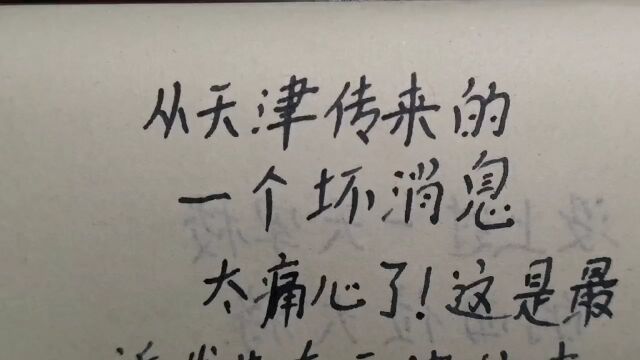 从天津传来的
一个坏消息
太痛心了!这是最